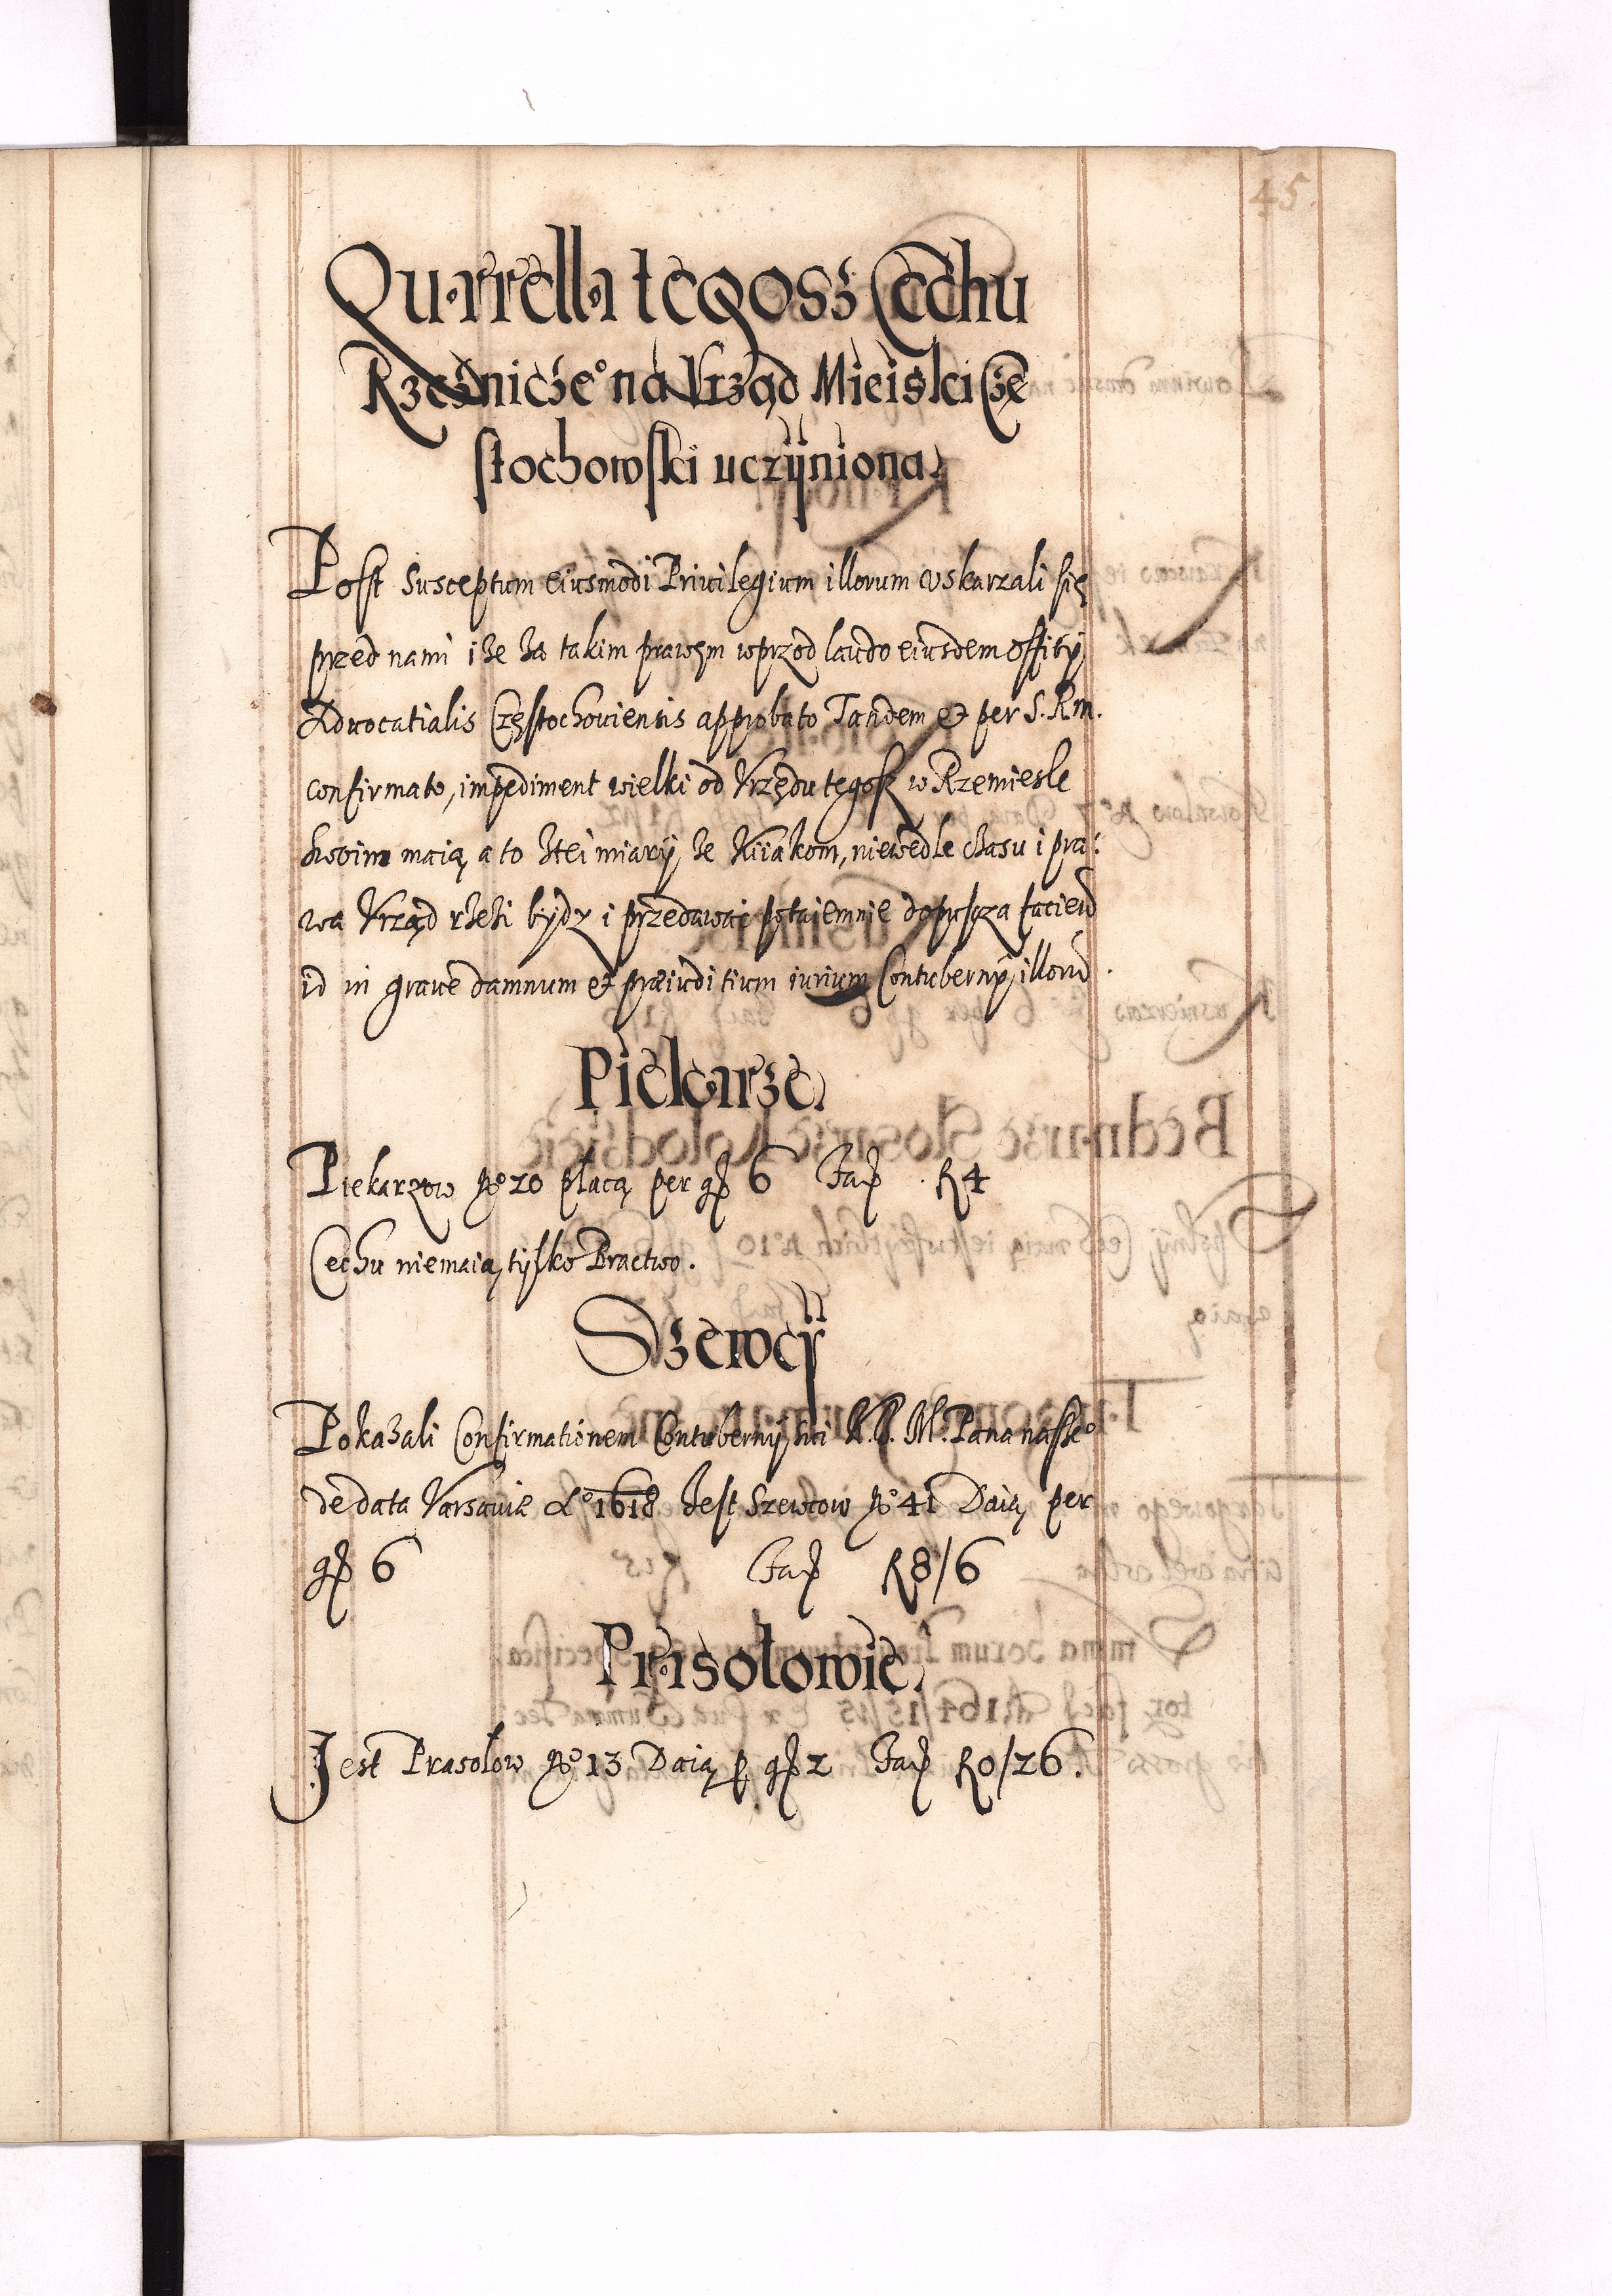 45.
Quarrella tegosz Cechu
Rzeźnicze° na Vrząd Mieiski Czę
stochowski uczÿniona.
Post susceptum eiusmodi Priuilegium illorum vskarzali się
przed nami iże za takim prawem wprzod laudo eiusdem officÿ
Aduocatialis Częstochouiensis approbato Tandem et per S. Rm.
confirmato, impediment wielki od Vrzędu tegosz w Rzemiesle
swoim maią, a to ztei miarÿ, że Kiiakom, niewedle czasu i pra:
wa Vrząd rzezi bÿdz i przedawac potaiemnie dopuscza faciend
id in graue damnum et præiuditium iurium Contubernÿ illorū.
Piekarze.
Piekarzow N° 20 placą per gß 6 Fať R 4
Cechu niemaią, tÿlko Bractwo.
Szewcÿ
Pokazali Confirmationem Contubernÿ sui K. J. M. Pana nasze°
de data Varsauiæ A° 1618 Jest Szewcow N° 41 Daią per
gß 6 Fať R 8/6
Prasołowie.
Jest Prasolow N° 13 Daią p gß 2 Fať R 0/26.